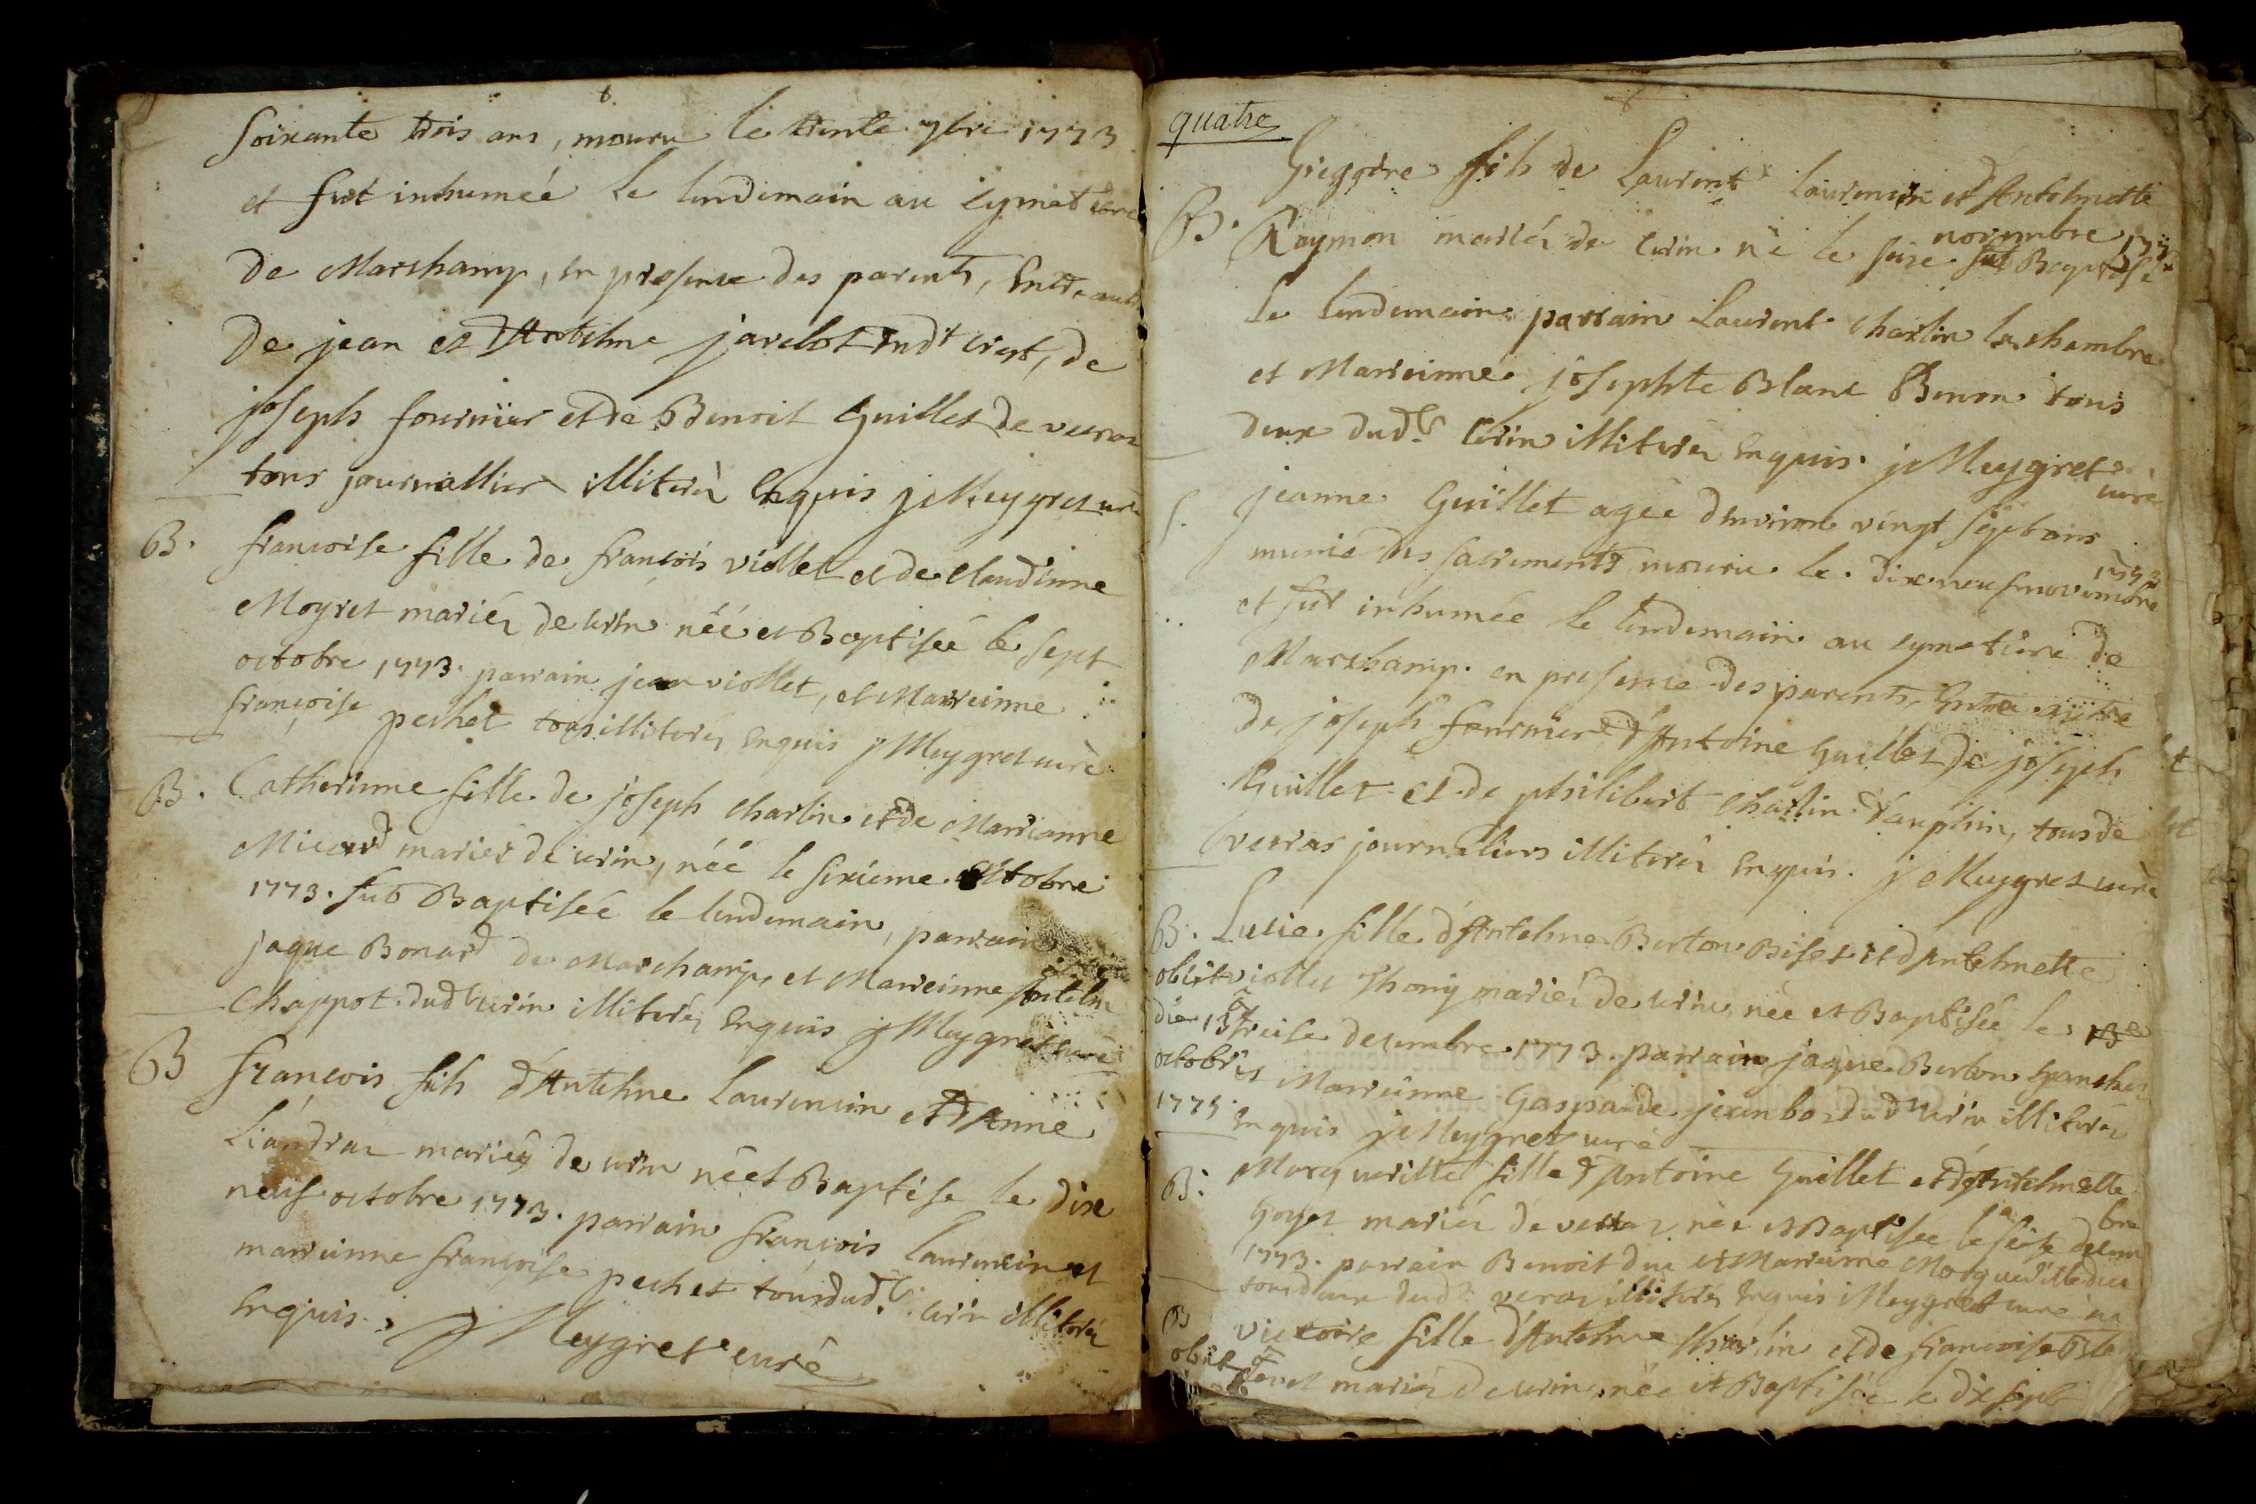 soixante trois ans, mouru le trente 7bre 1773
et fut inhumée le lendemain au cymetiere
de Marchamp, en presence des parents, entre autres
de jean et d'Antelme javelot dud.t cerin, de
joseph fournier et de Benoit Guillet de veiras
tous journallier illiterés enquis j Meygret curé
B. francoise fille de francois viollet et de Claudinne
Moyret mariés de cerin née et Baptisée le sept
octobre 1773. parrain jean viollet, et Marreinne
francoise pechet tous illiterés enquis j Meygret curé
B. Catherinne fille de joseph charlin et de Marrianne
Micard mariés de cerin, née le sixieme octobre
1773. fut Baptisée le lendemain, parrain
jaque Bonard de Marchamp, et Marreinne Antelm
Chappot dud.t cerin illiterés enquis j Meygret curé
B francois fils d'Antelme Laurencin et d'Anne
Liandraz mariés de cerin né et Baptise le dix
neuf octobre 1773. parrain francois Laurencin et
marreinne francoise pechet tous dud.t cerin illiterés
enquis. j Meygret curé
quatre
Gregoire fils de Laurent Laurencin et d'Antelmette
B. Raymon mariés de cerin né le seize novembre 1773 fut Baptisé
le lendemain parrain Laurent charlin la chambre
et Marreinne josephte Blanc Benon tous
deux dud.t cerin illiterés enquis. j Meygret curé
S. jeanne Guillet agée d'environ vingt sept ans
munie des sacrements mouru le dix neuf novembre 1773
et fut inhumée le lendemain au cymetiere de
Marchamp. en presence des parents, entre autre
de joseph fournier d'Antoine Guillet de joseph
Guillet et de philibert charlin dauphin, tous de
veiras journaliers illiterés enquis. j Meygret curé
B. Lucie fille d'Antelme Berton Biset et d'Antelmette
obiit viollet Thony mariés de cerin, née et Baptisée le
die 13 treise decembre 1773. parrain jaque Berton
octobris Marreinne Gasparde jeanbo dud.t cerin illiterés
1775. enquis j Meygret curé
B. Margueritte fille d'Antoine Guillet et d'Antelmette
Goyet mariés de veiras née et Baptisée le seise decembre
1773. parrain Benoit duc et Marreinne Margueritte duc
tous deux dud.t veiras illiterés enquis Meygret curé
B victoire fille d'Antelme charlin et de francoise
obiit mariés de cerin, née et Baptisée le dix sept